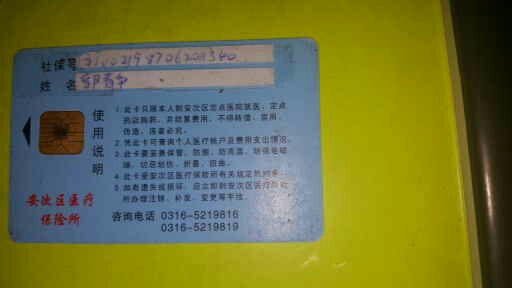 社保号
姓 名
使用说明
1. 此卡只限本人到安次区定点医院就医、定点
药店购药，并结算费用，不得转借、冒用、
伪造，违者必究。
2. 凭此卡可查询个人医疗帐户及费用支出情况。
3. 此卡要妥善保管，防潮、防高温、防强电磁
场，切忌划伤、折叠、扭曲。
4. 此卡受安次区医疗保险所有关规定的约束。
5. 如有遗失或损坏，应立即到安次区医疗保险
所办理注销、补发、变更等手续。
安次区医疗
保险所
咨询电话 0316-5219816
0316-5219819